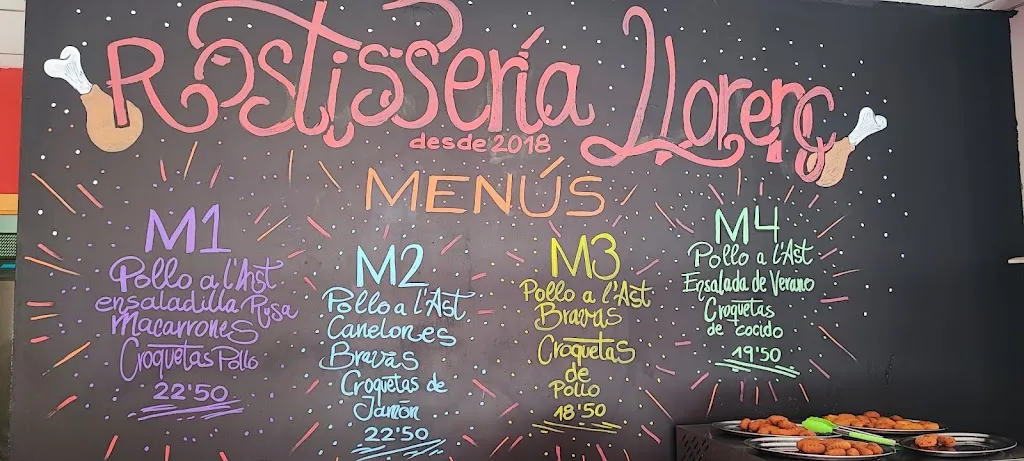 Rostissería Llorenç
desde 2018
MENÚS
M1
Pollo a l'Ast
ensaladilla Rusa
Macarrones
Croquetas Pollo
22'50
M2
Pollo a l'Ast
Canelones
Bravas
Croquetas de
Jamón
22'50
M3
Pollo a l'Ast
Bravas
Croquetas
de
Pollo
18'50
M4
Pollo a l'Ast
Ensalada de Verano
Croquetas
de cocido
19'50